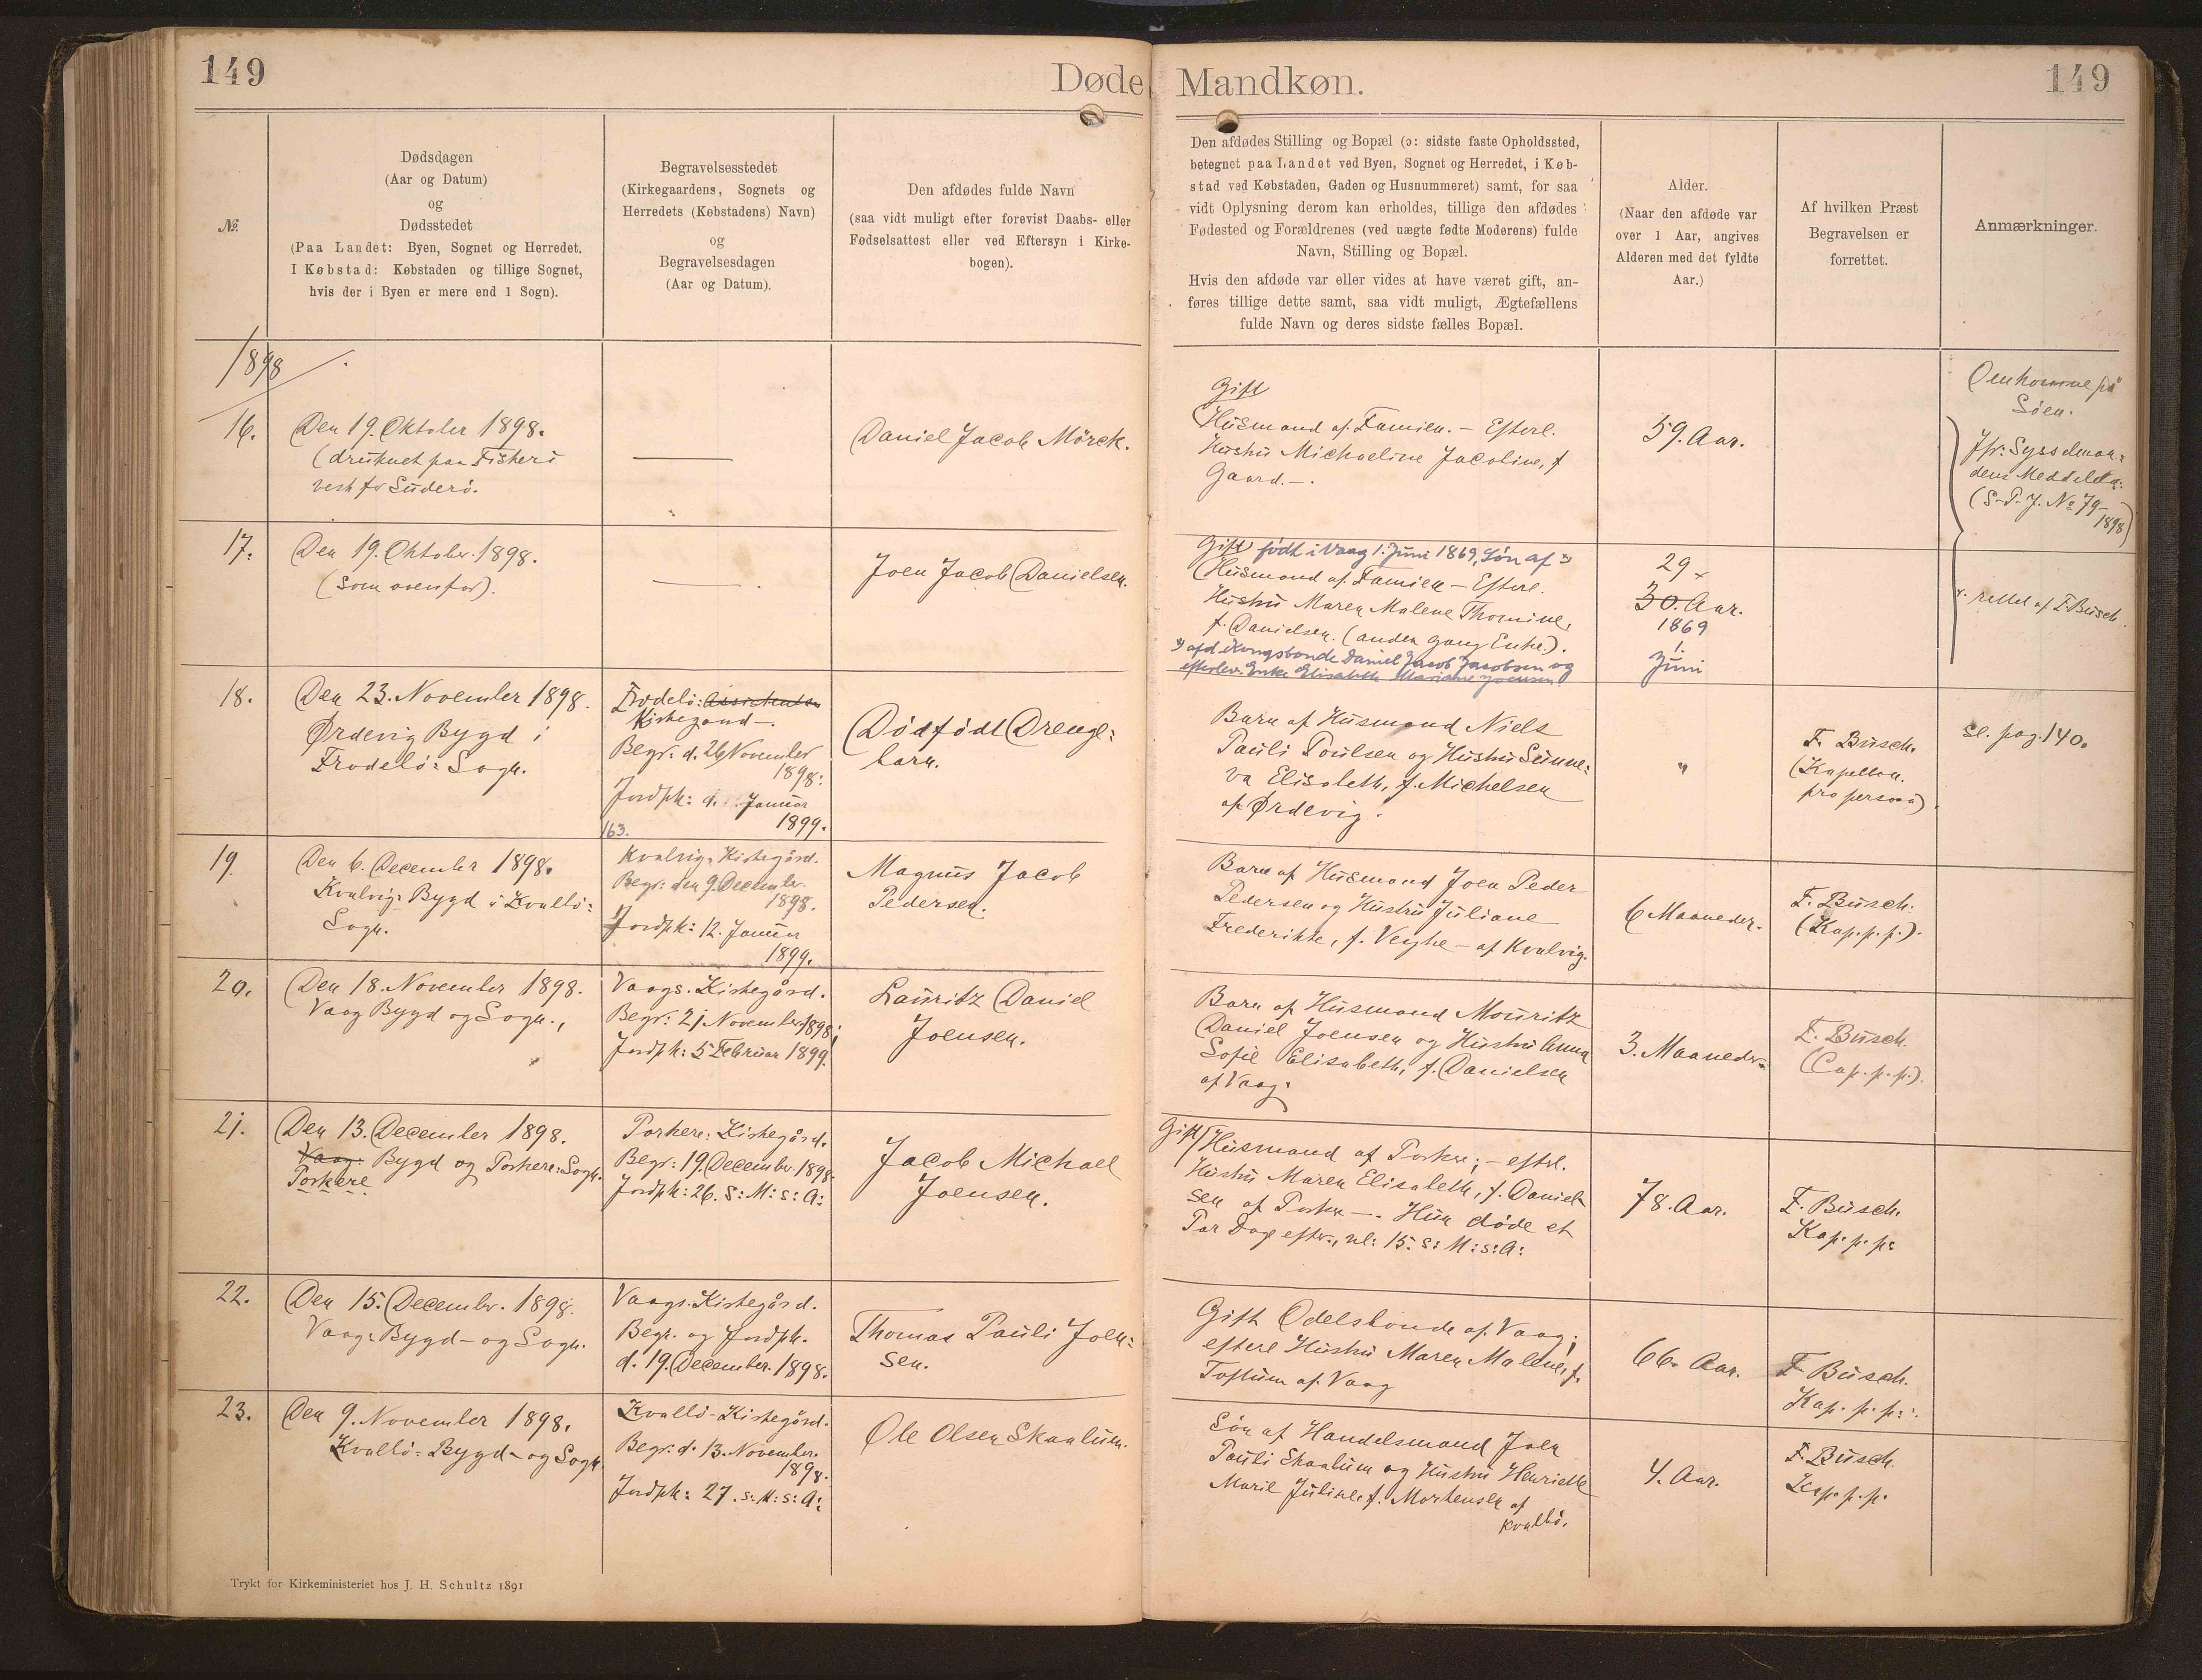 149
Døde Mandkøn.
149
№.
Dødsdagen
(Aar og Datum)
og
Dødsstedet
(Paa Landet: Byen, Sognet og Herredet.
I Købstad: Købstaden og tillige Sognet,
hvis der i Byen er mere end 1 Sogn).
Begravelsesstedet
(Kirkegaardens, Sognets og
Herredets (Købstadens) Navn)
og
Begravelsesdagen
(Aar og Datum).
Den afdødes fulde Navn
(saa vidt muligt efter forevist Daabs- eller
Fødselsattest eller ved Eftersyn i Kirke-
bogen).
Den afdødes Stilling og Bopæl (ɔ: sidste faste Opholdssted,
betegnet paa Landet ved Byen, Sognet og Herredet, i Køb-
stad ved Købstaden, Gaden og Husnummeret) samt, for saa
vidt Oplysning derom kan erholdes, tillige den afdødes
Fødested og Forældrenes (ved uægte fødte Moderens) fulde
Navn, Stilling og Bopæl.
Hvis den afdøde var eller vides at have været gift, an-
føres tillige dette samt, saa vidt muligt, Ægtefællens
fulde Navn og deres sidste fælles Bopæl.
Alder.
(Naar den afdøde var
over 1 Aar, angives
Alderen med det fyldte
Aar.)
Af hvilken Præst
Begravelsen er
forrettet.
Anmærkninger.
1898
16.
Den 19. Oktober 1898.
(druknet paa Fiskeri
vest for Suderö.
Daniel Jacob Mörck.
Gift
Husmand af Famien. – Efterl.
Hustru Michaeline Jacobine, f
Gaard. –.
59. Aar.
Omkomne på
Söen.
Jfr: Sysselman:
dens Meddelelse:
(S-P. J. No 79-
1898)
17.
Den 19. Oktober. 1898.
(Som ovenfor).
Joen Jacob Danielsen.
Gift født i Vaag 1. Juni 1869, Søn af
Husmand af Famien – Efterl.
Hustru Maren Malene Thomine,
f. Danielsen. (anden Gang Enke).
afd. Kongsbonde Daniel Jacob Jacobsen og
efterlev. Enke Elisabeth Mariane Joensen
29
30. Aar.
1869
1.
Juni
rettet af F. Busch
18.
Den 23. November 1898.
Ørdevig Bygd i
Frodebö: Sogn.
Frodebö: Assistents
Kirkegaard –.
Begr. d. 26 November
1898:
Jordpk: d. Januar
1899.
Dödfödt Drenge:
barn.
Barn af Husmand Niels
Pauli Poulsen og Hustru Sunne:
va Elisabeth, f. Michelsen
af Ørdevig.
"
F. Busch.
(Kapellan.
pro persona)
cf. pag. 140.
163.
19.
Den 6. December 1898.
Kvalvig: Bygd i Kvalbö:
Sogn.
Kvalvig: Kirkegård.
Begr: den 9. December.
1898.
Jordpk: 12. Januar
1899.
Magnus Jacob
Pedersen.
Barn af Husmand Joen Peder
Pedersen og Hustru Juliane
Frederikke, f. Veyhe – af Kvalvig.
6 Maaneder.
F. Busch.
(Kap. p. p.).
20.
Den 18. November 1898.
Vaag Bygd og Sogn.,
Vaags. Kirkegård.
Begr: 21 November 1898;
Jordpk: 5 Februar 1899.
Lauritz Daniel
Joensen.
Barn af Husmand Mouritz
Daniel Joensen og Hustru Anna
Sofie Elisabeth, f. Danielsen
af Vaag.
3. Maaneder.
F. Busch.
(Cap. p. p.).
21.
Den 13. December 1898.
Vaag: Bygd og Porkere: Sogn.
Porkere
Porkere: Kirkegård.
Begr: 19. December 1898.
Jordpk: 26. S: M: s: A:
Jacob Michael
Joensen.
Gift/ Husmand af Porkere; – efterl.
Hustru Maren Elisabeth, f. Daniel-
sen af Porkere –. Hun döde et
Par Dage efter., nl: 15. s: M: s: A:
78. Aar.
F. Busch.
Kap. p. p:
22.
Den 15. December. 1898.
Vaag: Bygd – og Sogn.
Vaags. Kirkegård.
Begr. og Jordpk.
d. 19. December. 1898.
Thomas Pauli Joen:
sen.
Gift Odelsbonde af Vaag;
efterl Hustru Maren Malene, f.
Toftum af Vaag
66. Aar.
F Busch.
Kap. p. p:.
23.
Den 9. November 1898.
Kvalbö: Bygd – og Sogn
Kvalbö – Kirkegård.
Begr. d. 13. November.
1898.
Jordpk: 27. s: M: s: A:
Ole Olsen Skaalum.
Sön af Handelsmand Joen
Pauli Skaalum og Hustru Henriette
Marie Juliane f. Mortensen af
Kvalbö.
4. Aar.
F. Busch.
Kap. p. p.
Trykt for Kirkeministeriet hos J. H. Schultz 1891